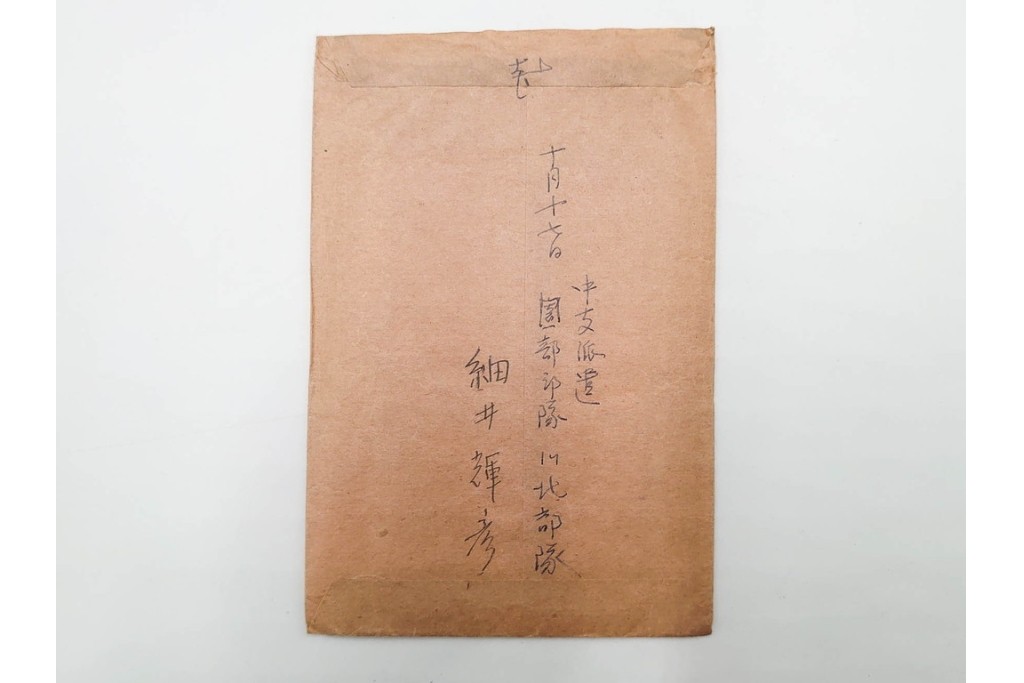 十月十七日
中支派遣
園部部隊 川北部隊
細井輝彦